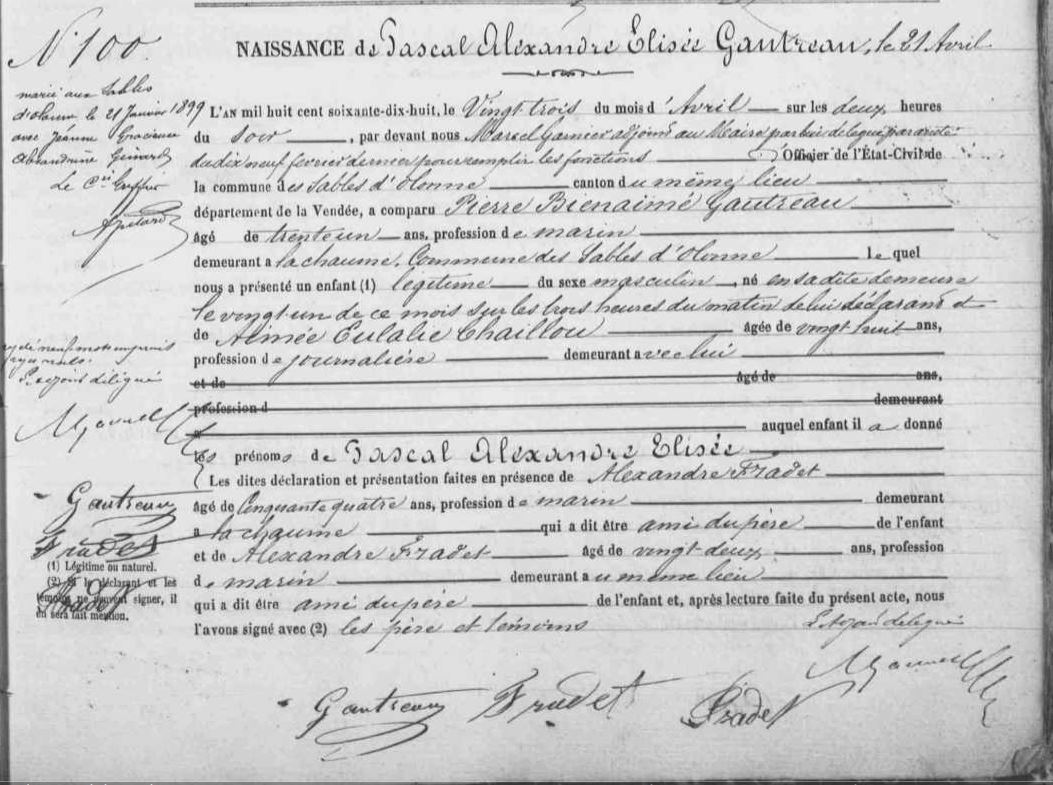 N° 100.
NAISSANCE de Pascal Alexandre Elisée Gautreau, le 21 Avril
marié aux Sables
d'olonne le 21 Janvier 1899
avec Jeanne Gracieuse
Alexandrine Guinard
Le Greffier
L'AN mil huit cent soixante-dix-huit, le Vingt trois du mois d'Avril sur les deux heures
du soir, par devant nous Marcel Garnier adjoint au Maire par lui délégué par arrêté
du dix neuf fevrier dernier pour remplir les fonctions D'Officier de l'État-Civil de
la commune des Sables d'Olonne canton du même lieu
département de la Vendée, a comparu Pierre Bienaimé Gautreau
âgé de trente un ans, profession de marin
demeurant a la chaume, Commune des Sables d'Olonne Lequel
nous a présenté un enfant (1) legitime du sexe masculin, né en sa dite demeure
le vingt-un de ce mois sur les trois heures du matin de lui déclarant et
de Aimée Eulalie Chaillou âgée de vingt huit ans,
profession de journalière demeurant avec lui
et de âgé de ans,
profession d demeurant
a auquel enfant il a donné
les prénoms de Pascal Alexandre Elisée
Les dites déclaration et présentation faites en présence de Alexandre Fradet
âgé de Cinquante quatre ans, profession de marin demeurant
a la chaume qui a dit être ami du père de l'enfant
et de Alexandre Fradet âgé de vingt-deux ans, profession
de marin demeurant au meme lieu
qui a dit être ami du père de l'enfant et, après lecture faite du présent acte, nous
l'avons signé avec (2) les père et témoins
L'adjoint délégué
mots
nuls.
L'adjoint délégué
Gautreau
Fradet
(1) Légitime ou naturel.
(2) Si le déclarant et les
témoins ne peuvent signer, il
en sera fait mention.
Fradet
Gautreau Fradet Fradet